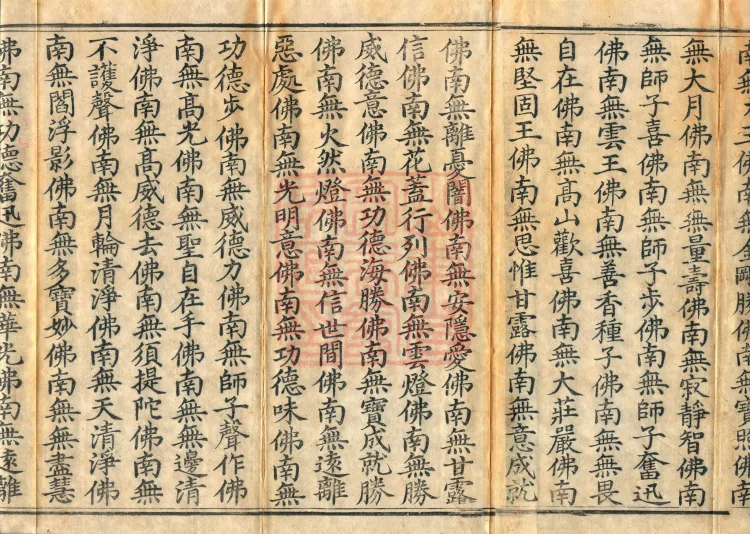 王佛南無金剛勝佛南無寶照佛南
無大月佛南無無量壽佛南無寂靜智佛南
無師子喜佛南無師子步佛南無師子奮迅
佛南無雲王佛南無善香種子佛南無無畏
自在佛南無髙山歡喜佛南無大莊嚴佛南
無堅固王佛南無思惟甘露佛南無意成就
佛南無離憂闇佛南無安隱愛佛南無甘露
信佛南無花蓋行列佛南無雲燈佛南無勝
威德意佛南無功德海勝佛南無寶成就勝
佛南無火然燈佛南無信世間佛南無遠離
惡處佛南無光明意佛南無功德味佛南無
功德步佛南無威德力佛南無師子聲作佛
南無髙光佛南無聖自在手佛南無無邊清
淨佛南無髙威德去佛南無須提陀佛南無
不護聲佛南無月輪清淨佛南無天清淨佛
南無閻浮影佛南無多寶妙佛南無無盡慧
佛南無功德奮迅佛南無華光佛南無遠離